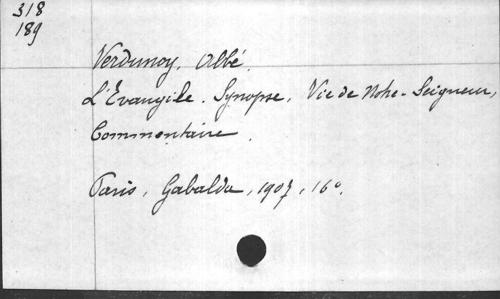 318
189
Verdunoy, Abbé.
L'Évangile. Synopse, Vie de Notre-Seigneur,
Commentaire.
Paris, Gabalda, 1907, 16°.